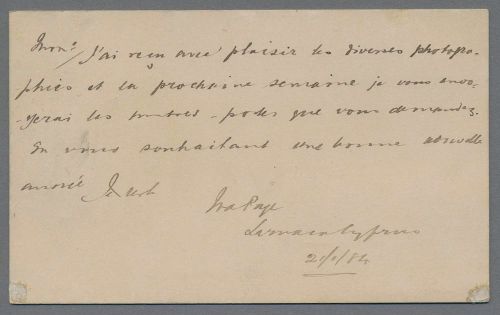 J'ai reçu avec plaisir les diverses photogra-
phies et la prochaine semaine je vous envo-
yerai les timbres-postes que vous demandez.
En vous souhaitant une bonne nouvelle
année
Larnaca Cyprus